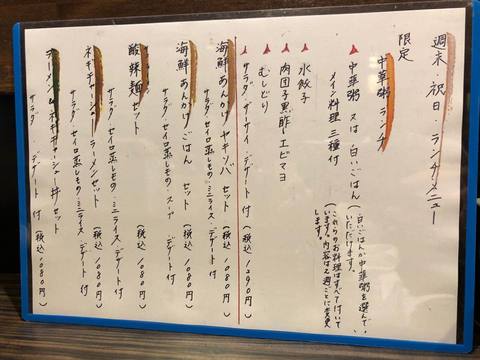 週末・祝日 ランチメニュー
限定
中華粥ランチ
中華粥 又は 白いごはん
(白いごはんか中華粥を選んで、
いただけます。)
メイン料理 三種付
(これらのお料理はすべて付いて
います。内容は2週ごとに変更
します。)
水餃子
肉団子黒酢 エビマヨ
むしどり
サラダ・ザーサイ・デザート付 (税込1290円)
海鮮あんかけヤキソバセット
サラダ・セイロ蒸しもの・ミニライス・デザート付 (税込1080円)
海鮮あんかけごはん セット
サラダ・セイロ蒸しもの・スープ・デザート付 (税込1080円)
酸辣麺セット
サラダ・セイロ蒸しもの・ミニライス・デザート付 (税込1080円)
ネギチャーシューラーメンセット
サラダ・セイロ蒸しもの・ミニライス・デザート付 (税込1080円)
ラーメン&ネギチャーシュー丼セット
サラダ・デザート付 (税込1080円)